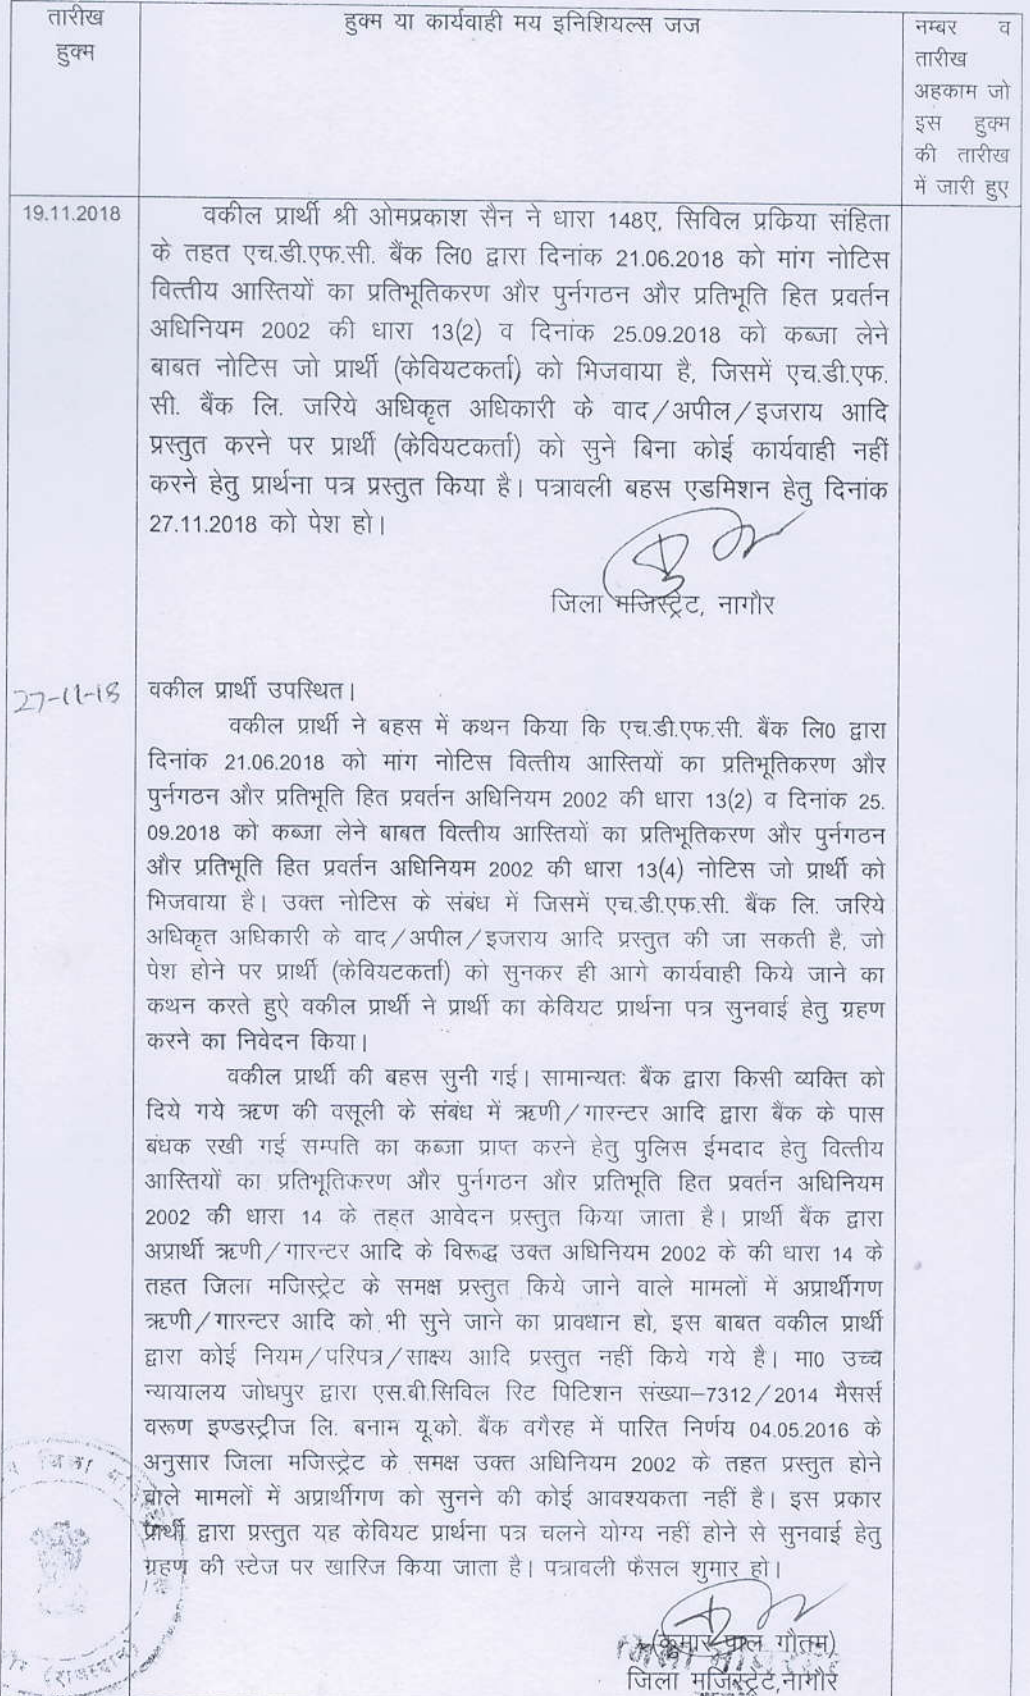 तारीख
हुक्म
हुक्म या कार्यवाही मय इनिशियल्स जज
नम्बर व
तारीख
अहकाम जो
इस हुक्म
की तारीख
में जारी हुए
19.11.2018
वकील प्रार्थी श्री ओमप्रकाश सैन ने धारा 148ए, सिविल प्रकिया संहिता
के तहत एच.डी.एफ.सी. बैंक लि0 द्वारा दिनांक 21.06.2018 को मांग नोटिस
वित्तीय आस्तियों का प्रतिभूतिकरण और पुर्नगठन और प्रतिभूति हित प्रवर्तन
अधिनियम 2002 की धारा 13(2) व दिनांक 25.09.2018 को कब्जा लेने
बाबत नोटिस जो प्रार्थी (केवियटकर्ता) को भिजवाया है, जिसमें एच.डी.एफ.
सी. बैंक लि. जरिये अधिकृत अधिकारी के वाद/अपील/इजराय आदि
प्रस्तुत करने पर प्रार्थी (केवियटकर्ता) को सुने बिना कोई कार्यवाही नहीं
करने हेतु प्रार्थना पत्र प्रस्तुत किया है। पत्रावली बहस एडमिशन हेतु दिनांक
27.11.2018 को पेश हो।
जिला मजिस्ट्रेट, नागौर
27-11-18
वकील प्रार्थी उपस्थित।
वकील प्रार्थी ने बहस में कथन किया कि एच.डी.एफ.सी. बैंक लि0 द्वारा
दिनांक 21.06.2018 को मांग नोटिस वित्तीय आस्तियों का प्रतिभूतिकरण और
पुर्नगठन और प्रतिभूति हित प्रवर्तन अधिनियम 2002 की धारा 13(2) व दिनांक 25.
09.2018 को कब्जा लेने बाबत वित्तीय आस्तियों का प्रतिभूतिकरण और पुर्नगठन
और प्रतिभूति हित प्रवर्तन अधिनियम 2002 की धारा 13(4) नोटिस जो प्रार्थी को
भिजवाया है। उक्त नोटिस के संबंध में जिसमें एच.डी.एफ.सी. बैंक लि. जरिये
अधिकृत अधिकारी के वाद/अपील/इजराय आदि प्रस्तुत की जा सकती है, जो
पेश होने पर प्रार्थी (केवियटकर्ता) को सुनकर ही आगे कार्यवाही किये जाने का
कथन करते हुऐ वकील प्रार्थी ने प्रार्थी का केवियट प्रार्थना पत्र सुनवाई हेतु ग्रहण
करने का निवेदन किया।
वकील प्रार्थी की बहस सुनी गई। सामान्यतः बैंक द्वारा किसी व्यक्ति को
दिये गये ऋण की वसूली के संबंध में ऋणी/गारन्टर आदि द्वारा बैंक के पास
बंधक रखी गई सम्पति का कब्जा प्राप्त करने हेतु पुलिस ईमदाद हेतु वित्तीय
आस्तियों का प्रतिभूतिकरण और पुर्नगठन और प्रतिभूति हित प्रवर्तन अधिनियम
2002 की धारा 14 के तहत आवेदन प्रस्तुत किया जाता है। प्रार्थी बैंक द्वारा
अप्रार्थी ऋणी/गारन्टर आदि के विरूद्ध उक्त अधिनियम 2002 के की धारा 14 के
तहत जिला मजिस्ट्रेट के समक्ष प्रस्तुत किये जाने वाले मामलों में अप्रार्थीगण
ऋणी/गारन्टर आदि को भी सुने जाने का प्रावधान हो, इस बाबत वकील प्रार्थी
द्वारा कोई नियम/परिपत्र/साक्ष्य आदि प्रस्तुत नहीं किये गये है। मा0 उच्च
न्यायालय जोधपुर द्वारा एस.बी.सिविल रिट पिटिशन संख्या–7312/2014 मैसर्स
वरूण इण्डस्ट्रीज लि. बनाम यू.को. बैंक वगैरह में पारित निर्णय 04.05.2016 के
अनुसार जिला मजिस्ट्रेट के समक्ष उक्त अधिनियम 2002 के तहत प्रस्तुत होने
वाले मामलों में अप्रार्थीगण को सुनने की कोई आवश्यकता नहीं है। इस प्रकार
प्रार्थी द्वारा प्रस्तुत यह केवियट प्रार्थना पत्र चलने योग्य नहीं होने से सुनवाई हेतु
ग्रहण की स्टेज पर खारिज किया जाता है। पत्रावली फैसल शुमार हो।
(कुमार पाल गौतम)
जिला मजिस्ट्रेट,नागौर
जिला
(राजस्थान)